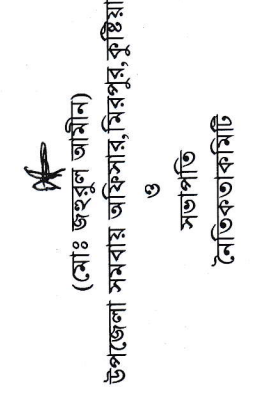 (মোঃ জহুরুল আমীন)
উপজেলা সমবায় অফিসার,মিরপুর,কুষ্টিয়া
ও
সভাপতি
নৈতিকতাকমিটি